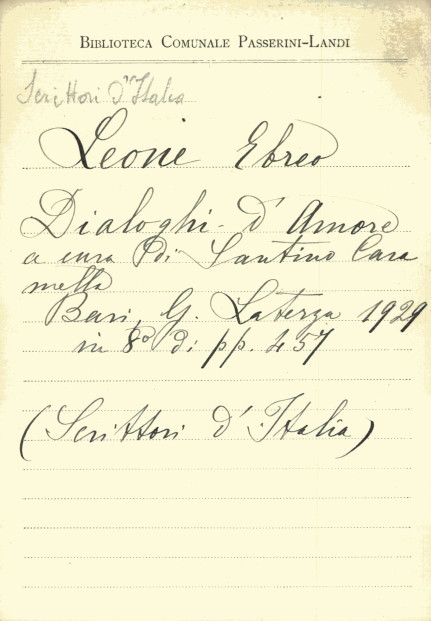 BIBLIOTECA COMUNALE PASSERINI-LANDI
Scrittori d'Italia
Leone Ebreo
Dialoghi d'Amore
a cura di Santino Cara
mella
Bari, G. Laterza 1929
in 8º di pp. 457
(Scrittori d'Italia)